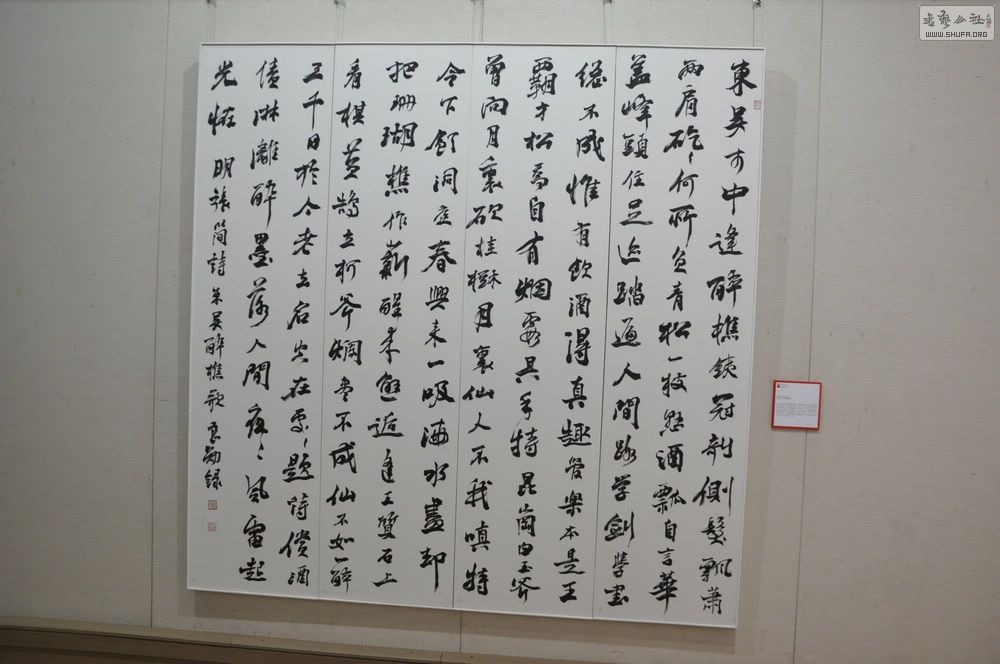 東吴市中逢醉樵鐵冠剞側髮飄蕭
两肩矻々何所負青松一枝懸酒瓢自言華
盖峰頭住足迹踏遍人間路学劍學書
總不成惟有飲酒得真趣管樂本是王
霸才松喬自有烟霞具手持昆崗白玉斧
曾向月裏砍桂樹月裏仙人不我嗔特
令下飲洞庭春興来一吸海水盡却
把珊瑚樵作薪醒来邂逅逢王質石上
看棋黄鵠立柯斧烂盡不成仙不如一醉
三千日於今老去名空在處々題詩償酒
債淋漓醉墨落人間夜々風雷起
光怪 明張簡詩東吴醉樵歌 錄
書藝公社
WWW.SHUFA.ORG